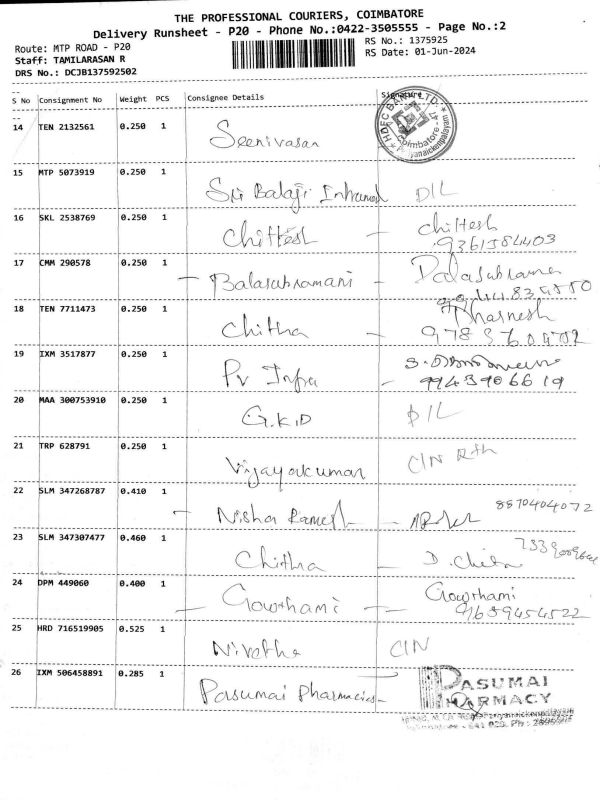 THE PROFESSIONAL COURIERS, COIMBATORE
Delivery Runsheet - P20 - Phone No.:0422-3505555 - Page No.:2
Route: MTP ROAD - P20
RS No.: 1375925
Staff: TAMILARASAN R
RS Date: 01-Jun-2024
DRS No.: DCJB137592502
S No Consignment No Weight PCS Consignee Details Signature
14 TEN 2132561 0.250 1 Seenivasan
HDFC BANK LTD.
Coimbatore - 47
Periyanaickenpalayam
15 MTP 5073919 0.250 1 Sri Balaji D/L
16 SKL 2538769 0.250 1 Chittesh - Chittesh
9361384403
17 CMM 290578 0.250 1 - Balasubramani -
18 TEN 7711473 0.250 1 Chitha - Dharnesh
19 IXM 3517877 0.250 1 PV Infra
- 9943906619
20 MAA 300753910 0.250 1 G.K.D D/L
21 TRP 628791 0.250 1 Vijayakumar C/N
22 SLM 347268787 0.410 1 - Nisha Ramesh - 8870404072
23 SLM 347307477 0.460 1 Chithra - D. Chithra
24 DPM 449060 0.400 1 - Gowthami - Gowthami
9659454522
25 HRD 716519905 0.525 1 Nivetha C/N
26 IXM 506458891 0.285 1 Pasumai Pharmacies -
PASUMAI
PHARMACY